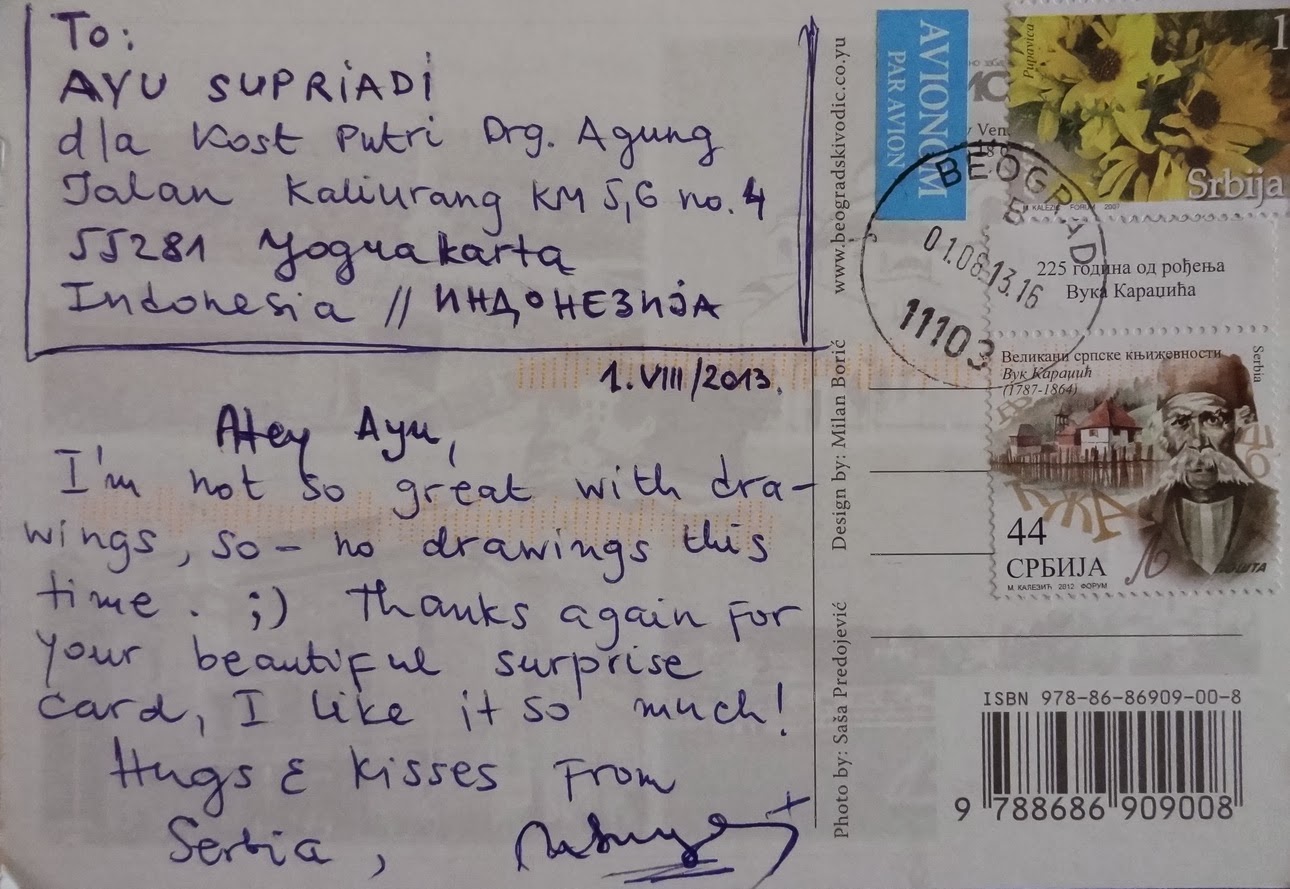 To:
AYU SUPRIADI
d/a Kost Putri Drg. Agung
Jalan Kaliurang KM 5,6 no. 4
55281 Yogyakarta
Indonesia // ИНДОНЕЗИЈА
1. VIII/2013.
Hey Ayu,
I'm not so great with dra-
wings, so – no drawings this
time. ;) Thanks again for
your beautiful surprise
card, I like it so much!
Hugs & kisses from
Serbia,
www.beogradskivodic.co.yu
Design by: Milan Borić
Photo by: Saša Predojević
AVIONOM
PAR AVION
Pupavica
1
Srbija
M. KALEZIĆ FORUM 2007
BEOGRAD
01.08.13.16
11103
225 година од рођења
Вука Караџића
Великани српске књижевности
Вук Караџић
(1787-1864)
Serbia
44
СРБИЈА
М. КАЛЕЗИЋ 2012 ФОРУМ
ПОШТА
ISBN 978-86-86909-00-8
9 788686 909008